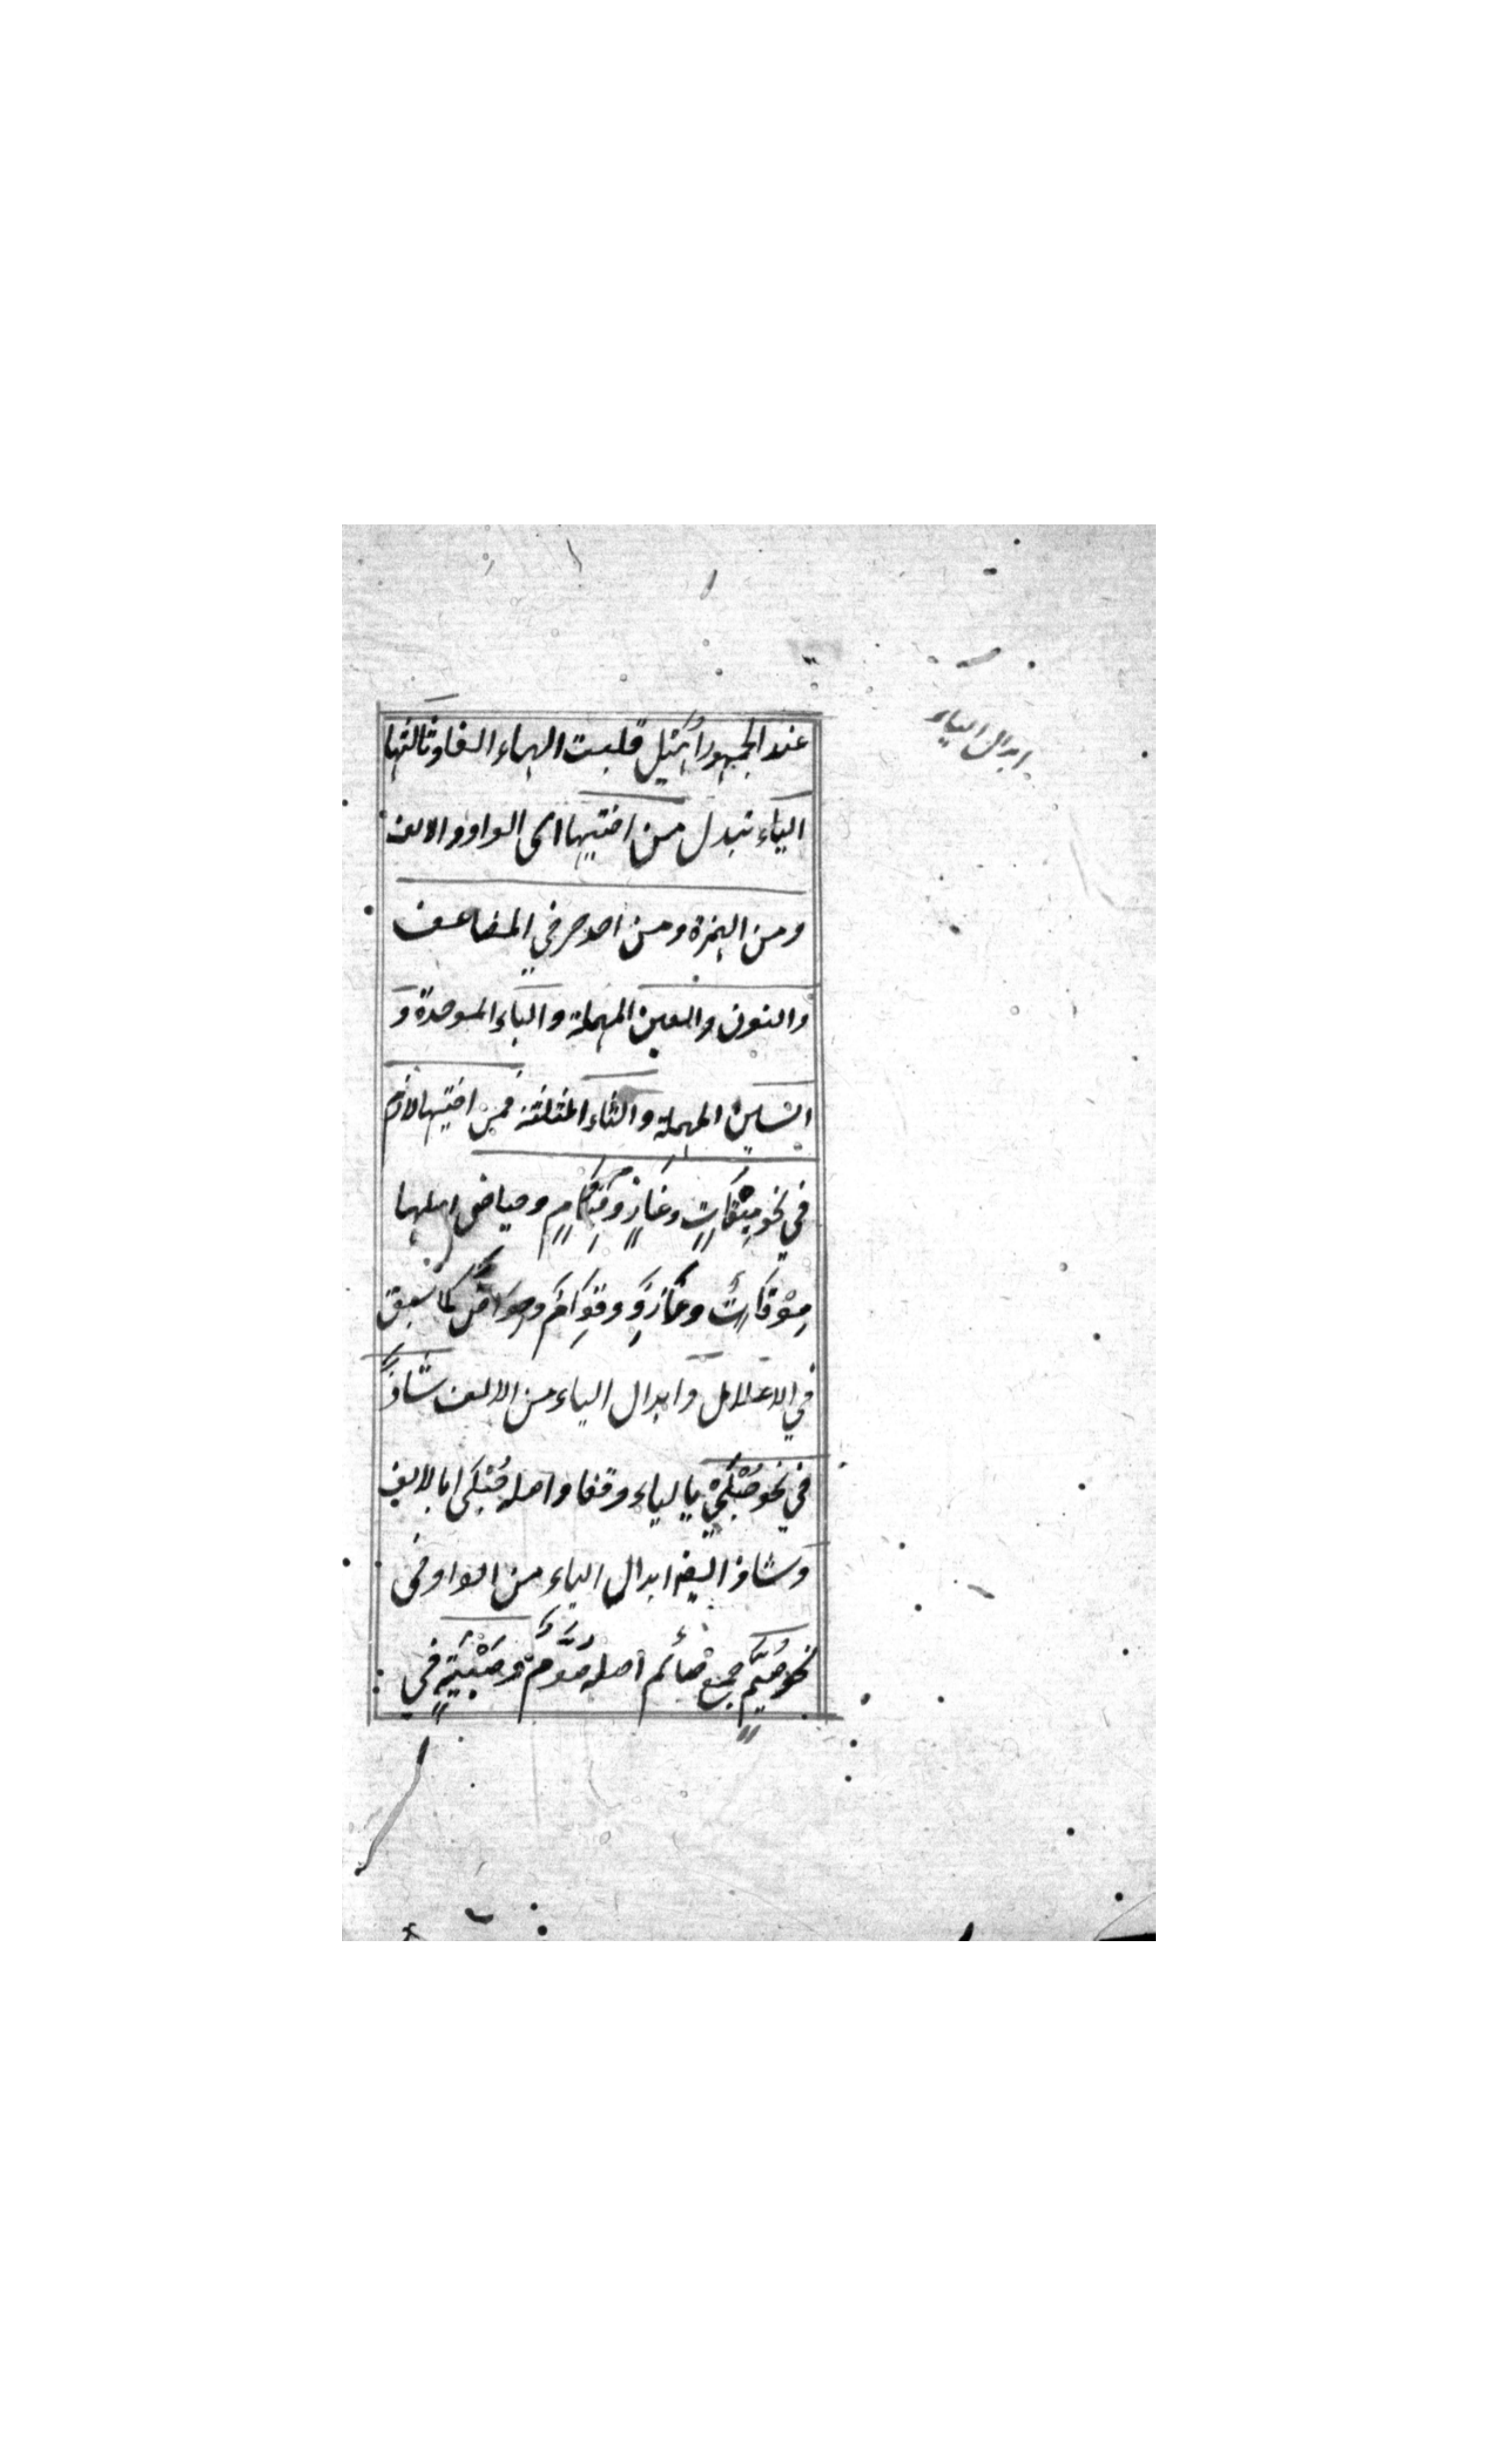 ابدال الياء
عند الجمهور أُهَيْل قلبت الهاء الفا وثالثها
الياء تبدل من اختيها اى الواو والالف
ومن الهمزة ومن احد حرفي المضاعف
والنون والعين المهملة والباء الموحدة وَ
السين المهملة والثاء المثلثة فمن اختيها لازم
في نحو مِيْقَاتٍ وغَازٍ وقِيَامٍ وحياض اصلها
مِوْقَاتٌ وغَازِوٌ وقِوَامٌ وحِوَاضٌ كما سبق
في الاعلال وابدال الياء من الالف شاذٌ
في نحو حُبْلَيْ بالياء وقفا واصله حُبْلَى ابالالف
وشاذ ايضا ابدال الياء من الواو فى
نحو صُيَّمٍ جمع صائم اصله صُوَّمٌ وصَبْيَةٍ في